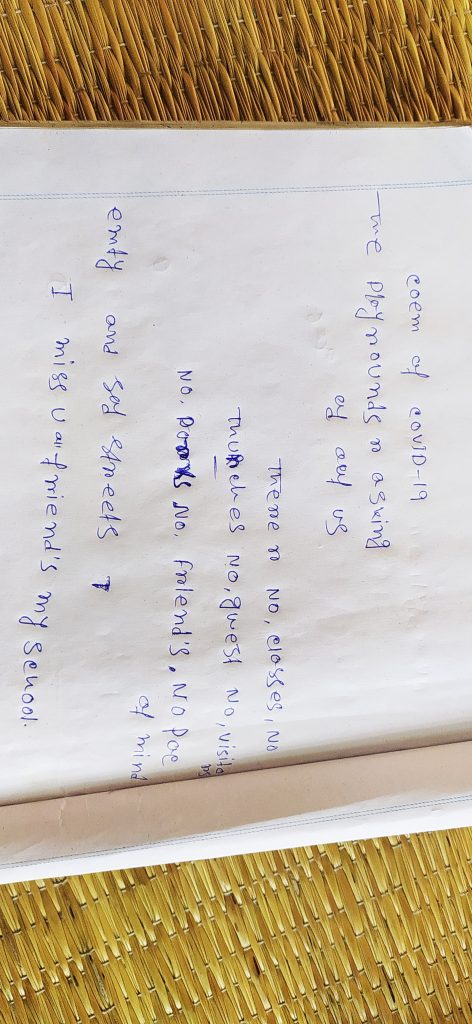 Poem of COVID-19
The playnounds r asking
of oay us
There r No, closses, No
Thurches No, guest No, visito
rs
No, Parks No, friend's, No Pae
of mind
emty and say streets
I miss u a friend's my school.